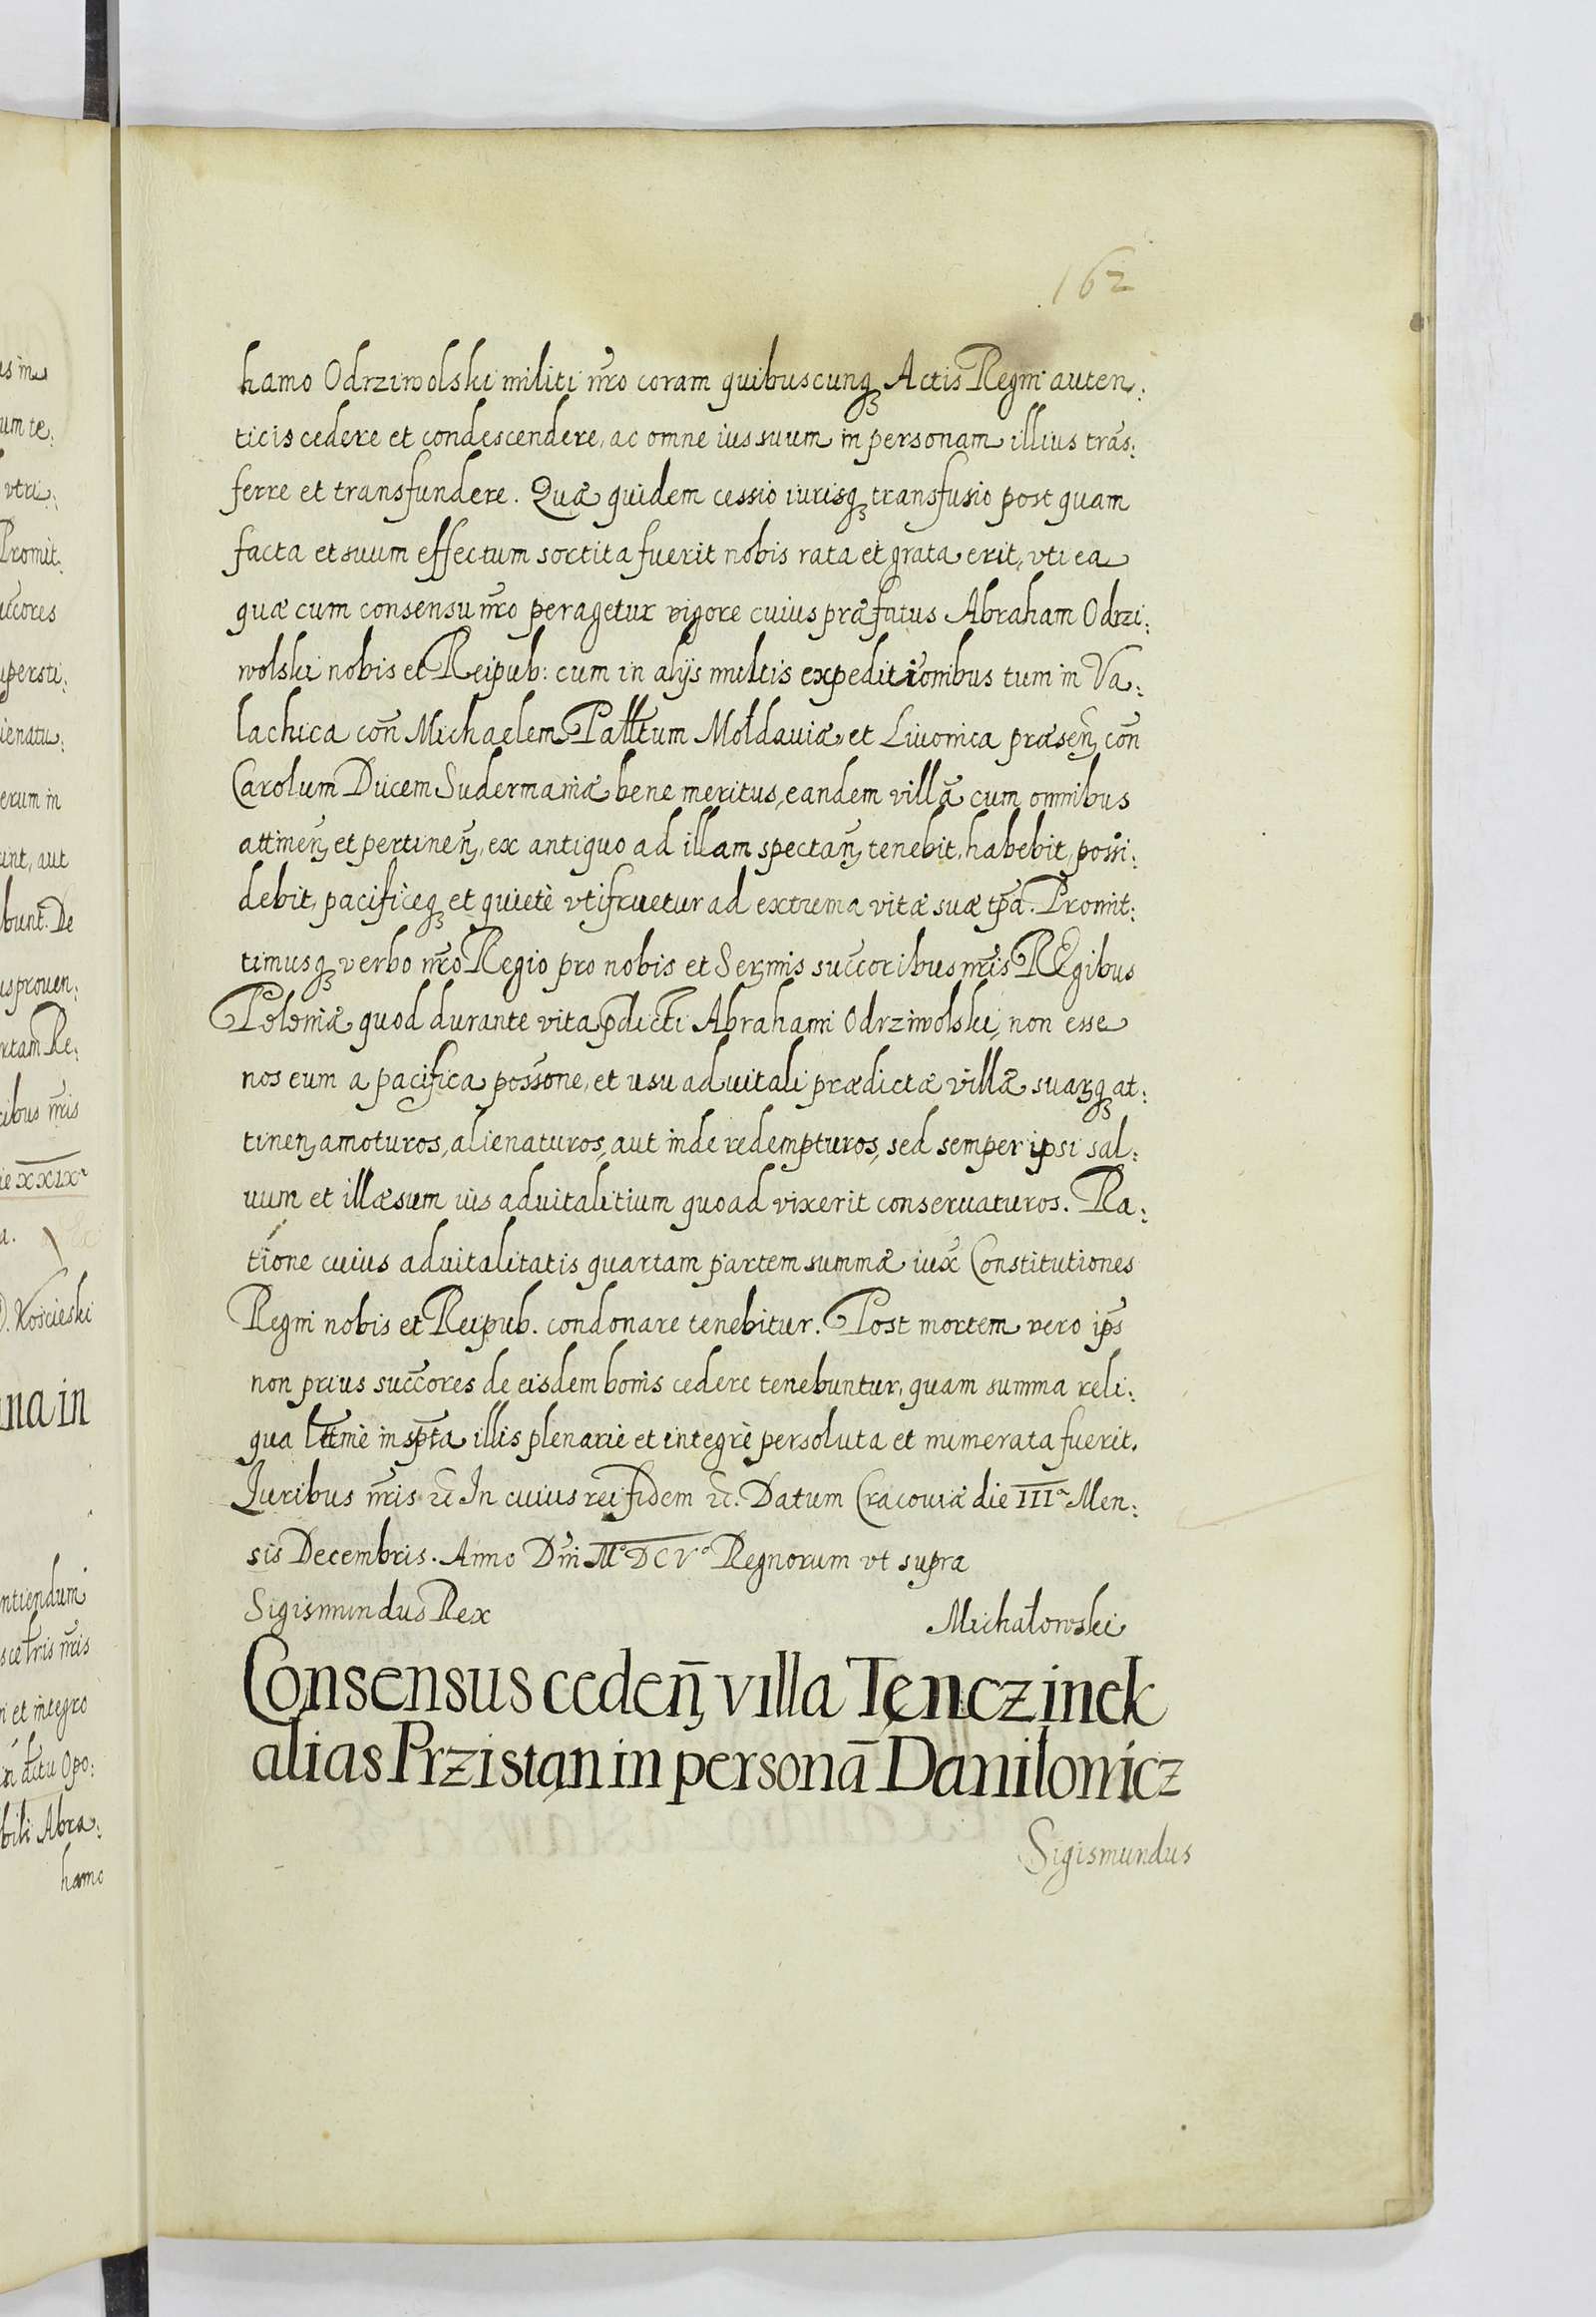 162
hamo Odrziwolski militi nr̃o coram quibuscunqꝫ Actis Regni auten:
ticis cedere et condescendere, ac omne ius suum in personam illius trãs:
ferre et transfundere. Quæ quidem cessio iurisqꝫ transfusio post quam
facta et suum effectum sortita fuerit nobis rata et grata erit, vti ea
quæ cum consensu nr̃o peragetur vigore cuius præfatus Abraham Odrzi:
wolski nobis et Reipub: cum in alijs multis expeditionibus tum in Va:
lachica coñ Michaelem Pallt̃um Moldauiæ, et Liuonica præseñ coñ
Carolum Ducem Sudermaniæ bene meritus, eandem villã cum omnibus
attineñ et pertineñ, ex antiquo ad illam spectañ tenebit, habebit, possi:
debit, pacificèqꝫ et quietè vtifruetur ad extrema vitæ suæ tp̃a. Promit:
timusqꝫ verbo nr̃o Regio pro nobis et Serm̃is succ̃oribus nr̃is REgibus
Poloniæ quod durante vita p̃dicti Abrahami Odrziwolski, non esse
nos eum a pacifica poss̃one, et usu aduitali prædictæ villæ suarqꝫ at:
tineñ amoturos, alienaturos, aut inde redempturos, sed semper ipsi sal:
uum et illæsum ius aduitalitium quoad vixerit conseruaturos. Ra:
tione cuius aduitalitatis quartam partem summæ iux̃ Constitutiones
Regni nobis et Reipub. condonare tenebitur. Post mortem vero ip̃s
non prius succ̃ores de eisdem bonis cedere tenebuntur, quam summa reli:
qua ltt̃mè insp̃ta illis plenarie et integrè persoluta et numerata fuerit.
Juribus nr̃is ꝛc̃ In cuius rei fidem ꝛc̃. Datum Cracouiæ die IIIª Men:
sis Decembris. Anno Dn̄i M° DCV° Regnorum vt supra
Sigismundus Rex
Michałowski
Consensus cedeñ villa Tenczinek
alias Przistan in personã Daniłowicz
Sigismundus